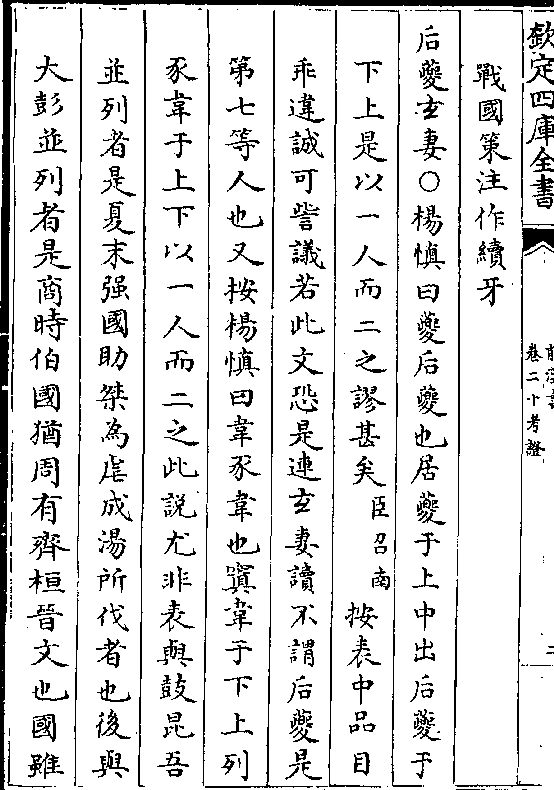 欽定四庫全書
卷二十考證
戰國策注作續牙
后夔𤣥妻○楊慎曰夔后夔也居夔于上中出后夔于
下上是以一人而二之謬甚矣臣召南按表中品目
乖違誠可訾議若此文恐是連𤣥妻讀不謂后夔是
第七等人也又按楊慎曰韋豕韋也寘韋于下上列
豕韋于上下以一人而二之此説尤非表與鼓昆吾
並列者是夏末强國助桀為虐成湯所伐者也後與
大彭並列者是商時伯國猶周有齊桓晉文也國雖